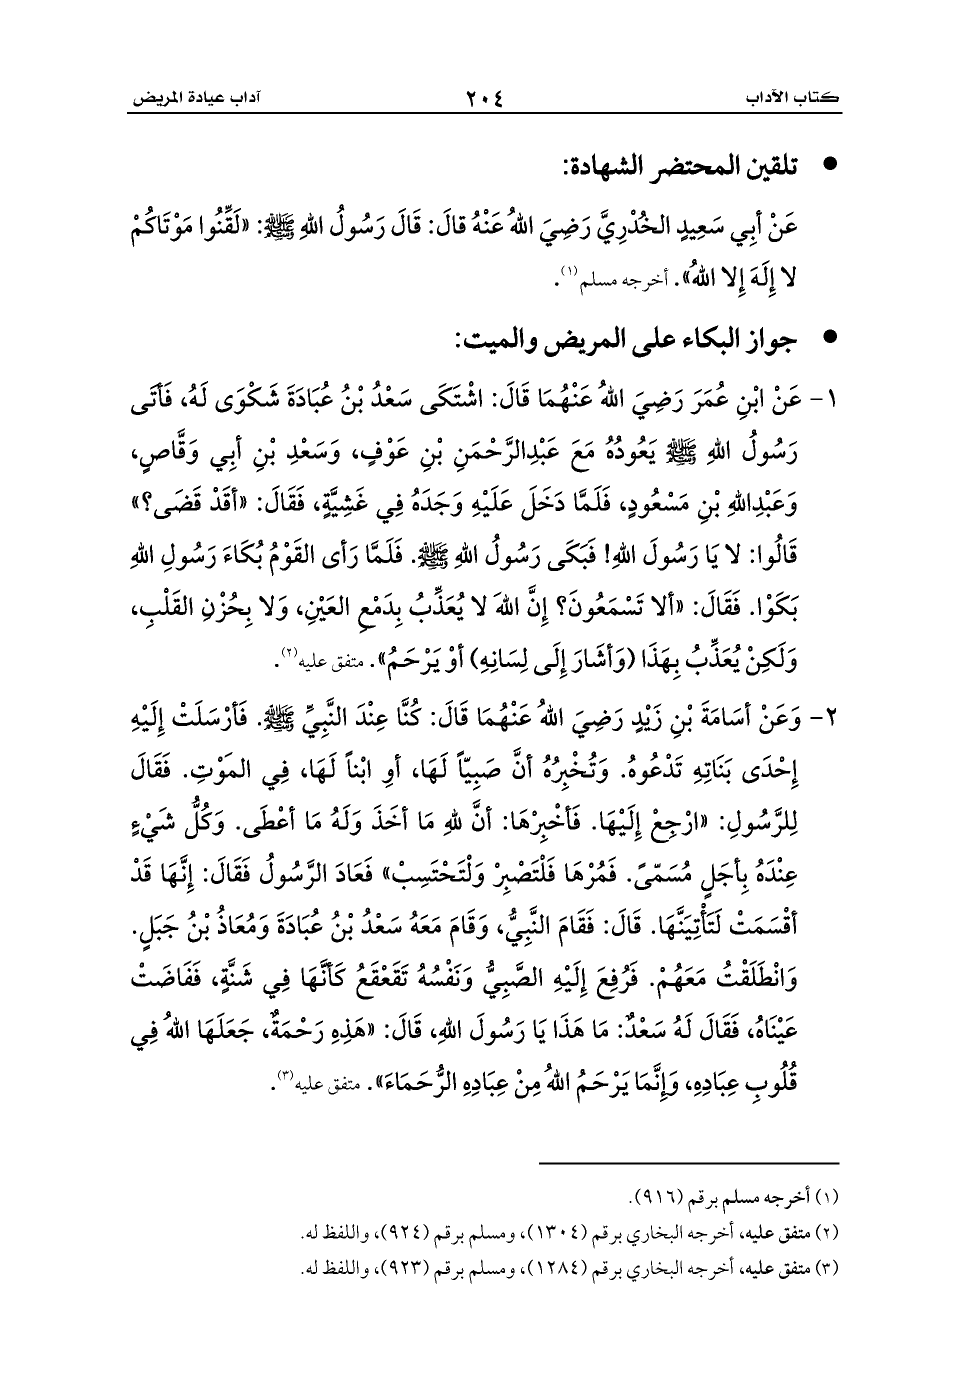 كتاب الآداب ٢٠٤ آداب عيادة المريض
● تلقين المحتضر الشهادة:
عَنْ أبِي سَعِيدٍ الخُدْرِيَّ رَضِيَ اللهُ عَنْهُ قالَ: قَالَ رَسُولُ اللهِ ﷺ: «لَقِّنُوا مَوْتَاكُمْ
لا إِلَهَ إِلا اللهُ». أخرجه مسلم(١).
● جواز البكاء على المريض والميت:
١- عَنْ ابْنِ عُمَرَ رَضِيَ اللهُ عَنْهُمَا قَالَ: اشْتَكَى سَعْدُ بْنُ عُبَادَةَ شَكْوَى لَهُ، فَأتَى
رَسُولُ اللهِ ﷺ يَعُودُهُ مَعَ عَبْدِالرَّحْمَنِ بْنِ عَوْفٍ، وَسَعْدِ بْنِ أبِي وَقَّاصٍ،
وَعَبْدِاللهِ بْنِ مَسْعُودٍ، فَلَمَّا دَخَلَ عَلَيْهِ وَجَدَهُ فِي غَشِيَّةٍ، فَقَالَ: «أقَدْ قَضَى؟»
قَالُوا: لا يَا رَسُولَ اللهِ! فَبَكَى رَسُولُ اللهِ ﷺ. فَلَمَّا رَأى القَوْمُ بُكَاءَ رَسُولِ اللهِ
بَكَوْا. فَقَالَ: «ألا تَسْمَعُونَ؟ إِنَّ اللهَ لا يُعَذِّبُ بِدَمْعِ العَيْنِ، وَلا بِحُزْنِ القَلْبِ،
وَلَكِنْ يُعَذِّبُ بِهَذَا (وَأشَارَ إِلَى لِسَانِهِ) أوْ يَرْحَمُ». متفق عليه(٢).
٢- وَعَنْ أسَامَةَ بْنِ زَيْدٍ رَضِيَ اللهُ عَنْهُمَا قَالَ: كُنَّا عِنْدَ النَّبِيِّ ﷺ. فَأرْسَلَتْ إِلَيْهِ
إِحْدَى بَنَاتِهِ تَدْعُوهُ. وَتُخْبِرُهُ أنَّ صَبِيّاً لَهَا، أوِ ابْناً لَهَا، فِي المَوْتِ. فَقَالَ
لِلرَّسُولِ: «ارْجِعْ إِلَيْهَا. فَأخْبِرْهَا: أنَّ للهِ مَا أخَذَ وَلَهُ مَا أعْطَى. وَكُلُّ شَيْءٍ
عِنْدَهُ بِأجَلٍ مُسَمّىً. فَمُرْهَا فَلْتَصْبِرْ وَلْتَحْتَسِبْ» فَعَادَ الرَّسُولُ فَقَالَ: إِنَّهَا قَدْ
أقْسَمَتْ لَتَأْتِيَنَّهَا. قَالَ: فَقَامَ النَّبِيُّ، وَقَامَ مَعَهُ سَعْدُ بْنُ عُبَادَةَ وَمُعَاذُ بْنُ جَبَلٍ.
وَانْطَلَقْتُ مَعَهُمْ. فَرُفِعَ إِلَيْهِ الصَّبِيُّ وَنَفْسُهُ تَقَعْقَعُ كَأنَّهَا فِي شَنَّةٍ، فَفَاضَتْ
عَيْنَاهُ، فَقَالَ لَهُ سَعْدٌ: مَا هَذَا يَا رَسُولَ اللهِ، قَالَ: «هَذِهِ رَحْمَةٌ، جَعَلَهَا اللهُ فِي
قُلُوبِ عِبَادِهِ، وَإِنَّمَا يَرْحَمُ اللهُ مِنْ عِبَادِهِ الرُّحَمَاءَ». متفق عليه(٣).
(١) أخرجه مسلم برقم (٩١٦).
(٢) متفق عليه، أخرجه البخاري برقم (١٣٠٤)، ومسلم برقم (٩٢٤)، واللفظ له.
(٣) متفق عليه، أخرجه البخاري برقم (١٢٨٤)، ومسلم برقم (٩٢٣)، واللفظ له.